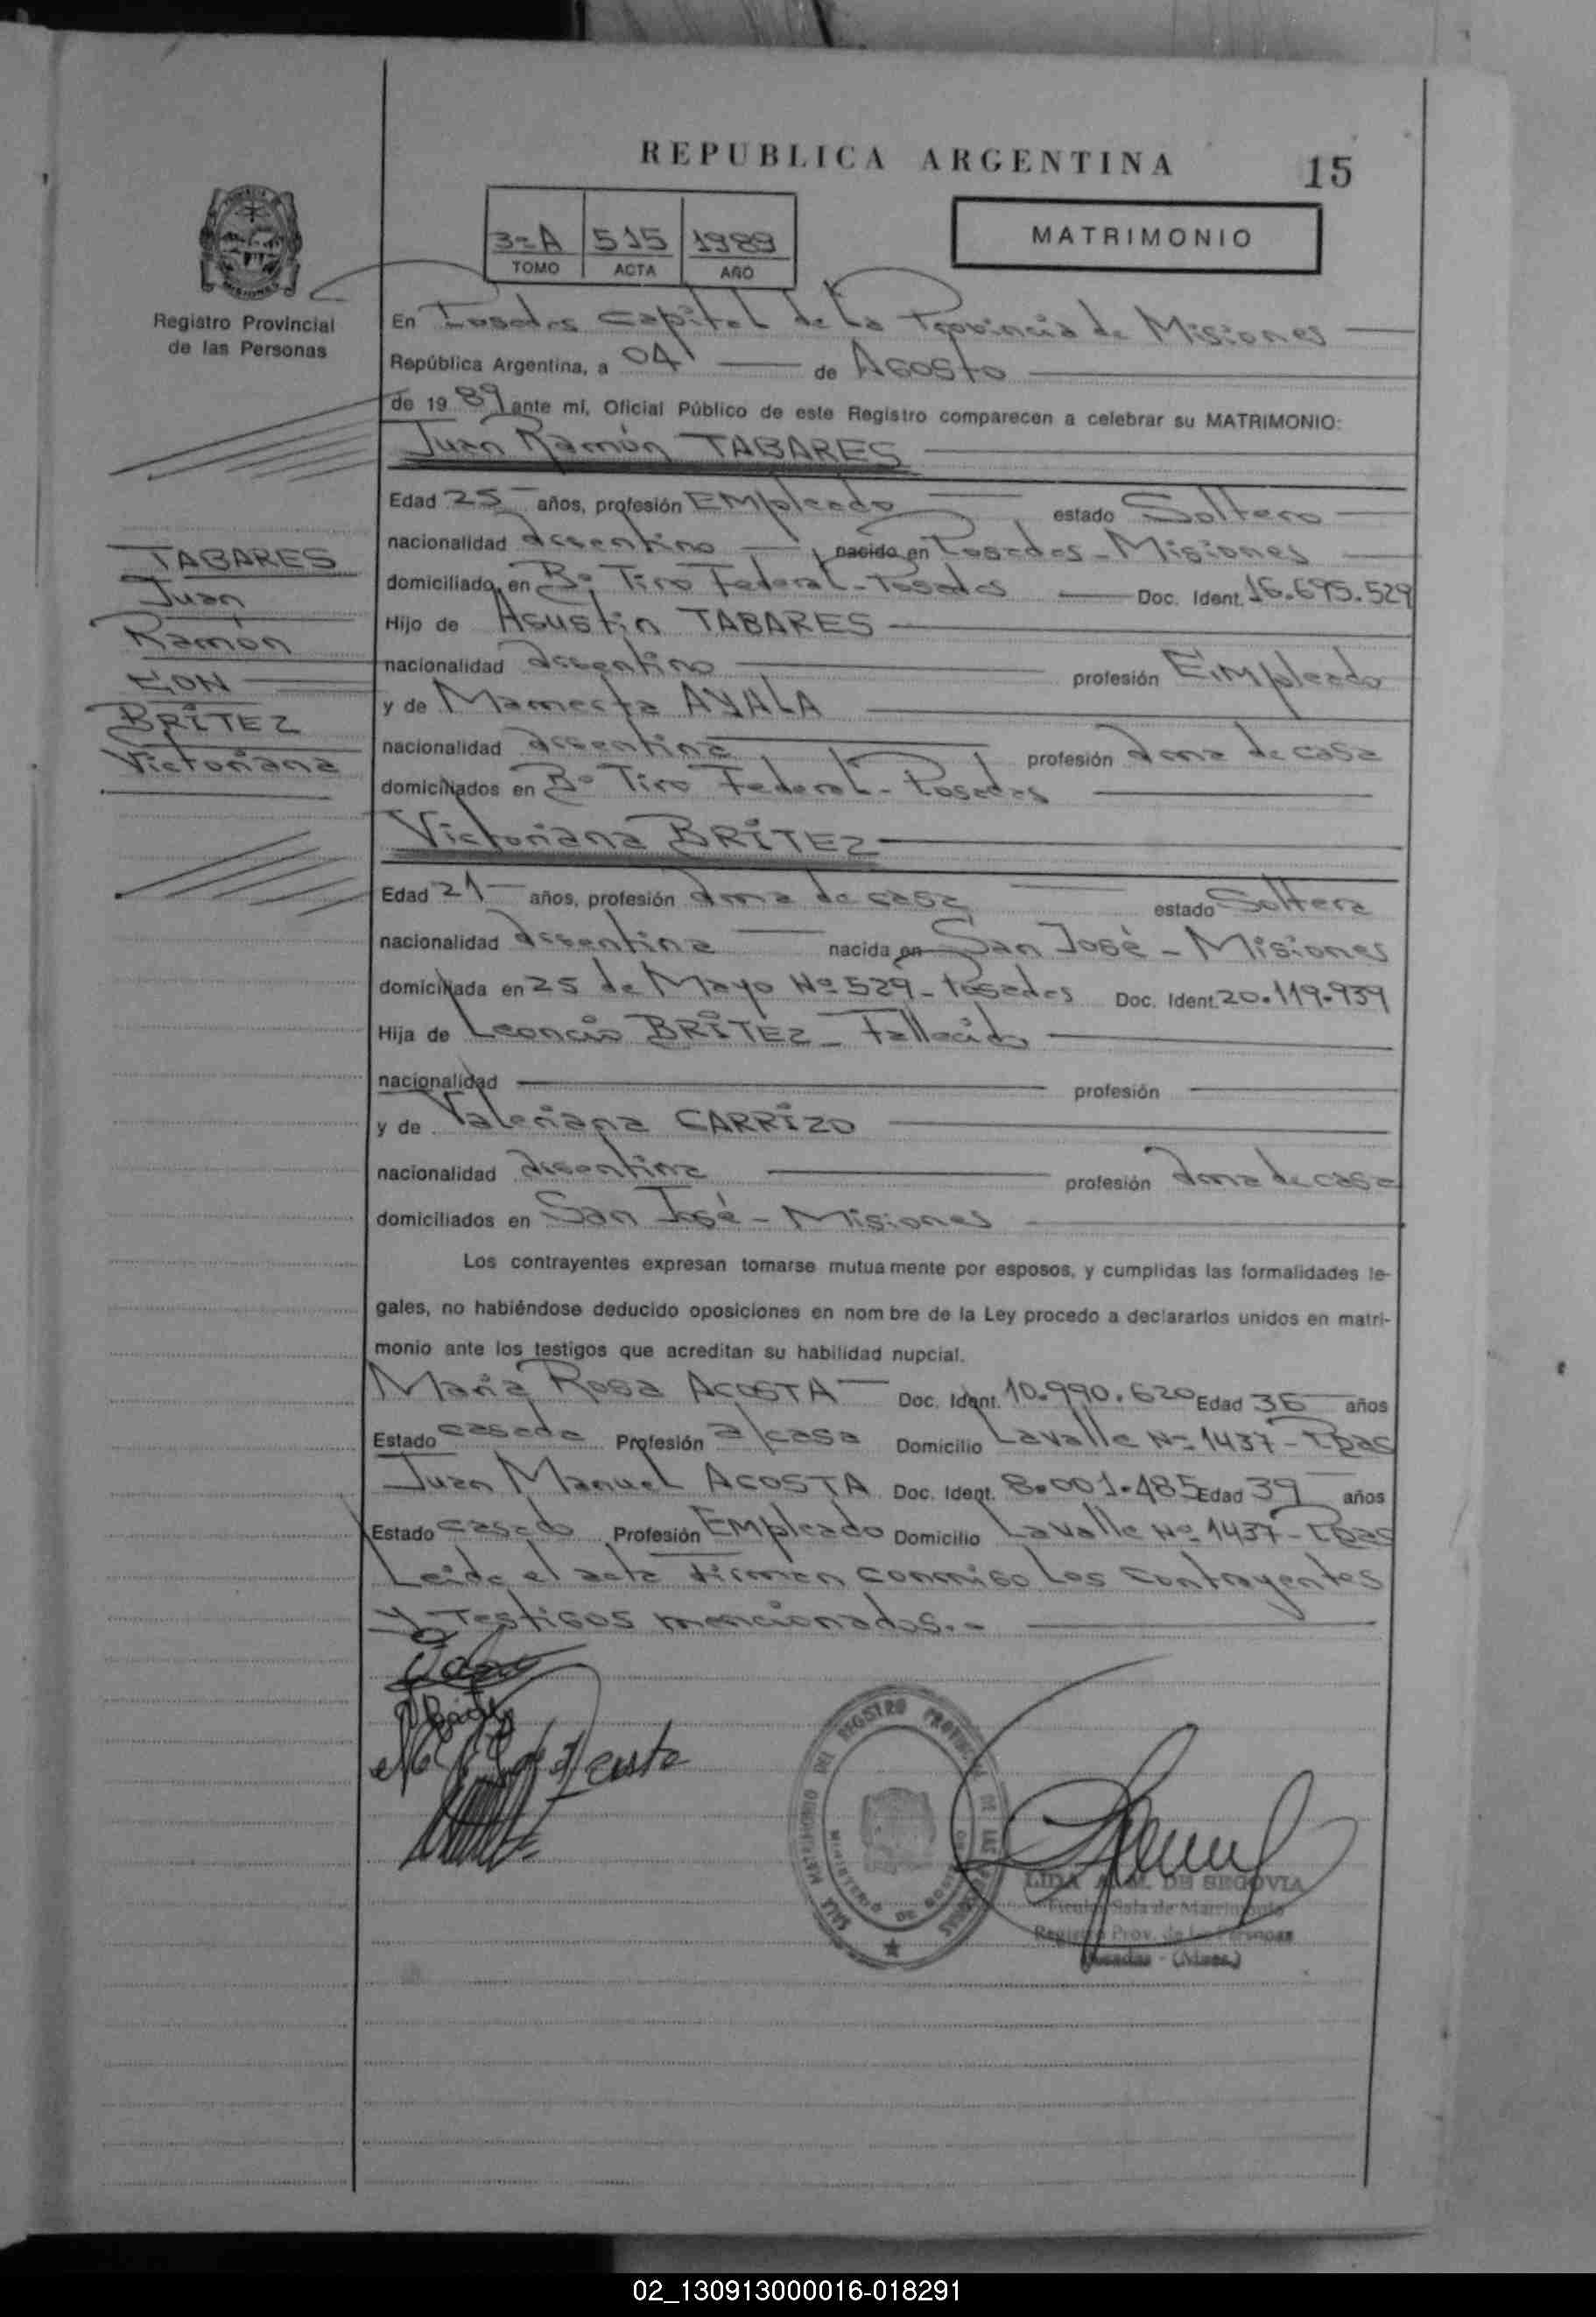 REPUBLICA ARGENTINA
15
3=A 515 1989
TOMO ACTA AÑO
MATRIMONIO
Registro Provincial
de las Personas
En Posadas Capital de la Provincia de Misiones
República Argentina, a 04 de Agosto
de 19 89 ante mí, Oficial Público de este Registro comparecen a celebrar su MATRIMONIO:
Juan Ramón TABARES
Edad 25 años, profesión Empleado estado Soltero
nacionalidad argentino nacido en Posadas - Misiones
domiciliado en Bº Tiro Federal - Posadas Doc. Ident. 16.695.529
Hijo de Agustin TABARES
nacionalidad argentino profesión Empleado
y de Mamerta AYALA
nacionalidad argentina profesión ama de casa
domiciliados en Bº Tiro Federal - Posadas
TABARES
Juan
Ramón
CON
BRÍTEZ
Victoriana
Victoriana BRÍTEZ
Edad 21 años, profesión ama de casa estado Soltera
nacionalidad argentina nacida en San José - Misiones
domiciliada en 25 de Mayo Nº 529 - Posadas Doc. Ident. 20.119.939
Hija de Leoncio BRÍTEZ - Fallecido
nacionalidad profesión
y de Valeriana CARRIZO
nacionalidad argentina profesión ama de casa
domiciliados en San José - Misiones
Los contrayentes expresan tomarse mutua mente por esposos, y cumplidas las formalidades le-
gales, no habiéndose deducido oposiciones en nom bre de la Ley procedo a declararlos unidos en matri-
monio ante los testigos que acreditan su habilidad nupcial.
Maria Rosa ACOSTA Doc. Ident. 10.990.620 Edad 36 años
Estado casada Profesión a/casa Domicilio Lavalle Nº 1437 - Pdas
Juan Manuel ACOSTA Doc. Ident. 8.001.485 Edad 39 años
Estado casado Profesión Empleado Domicilio Lavalle Nº 1437 - Pdas
Leida el acta firman conmigo los contrayentes
y testigos mencionados.-
SALA MATRIMONIO DEL REGISTRO PROVINCIAL DE LAS PERSONAS
MINISTERIO DE
LIDA A. M. DE SEGOVIA
Titular Sala de Matrimonio
Registro Prov. de las Personas
Posadas - (Mnes.)
02_130913000016-018291